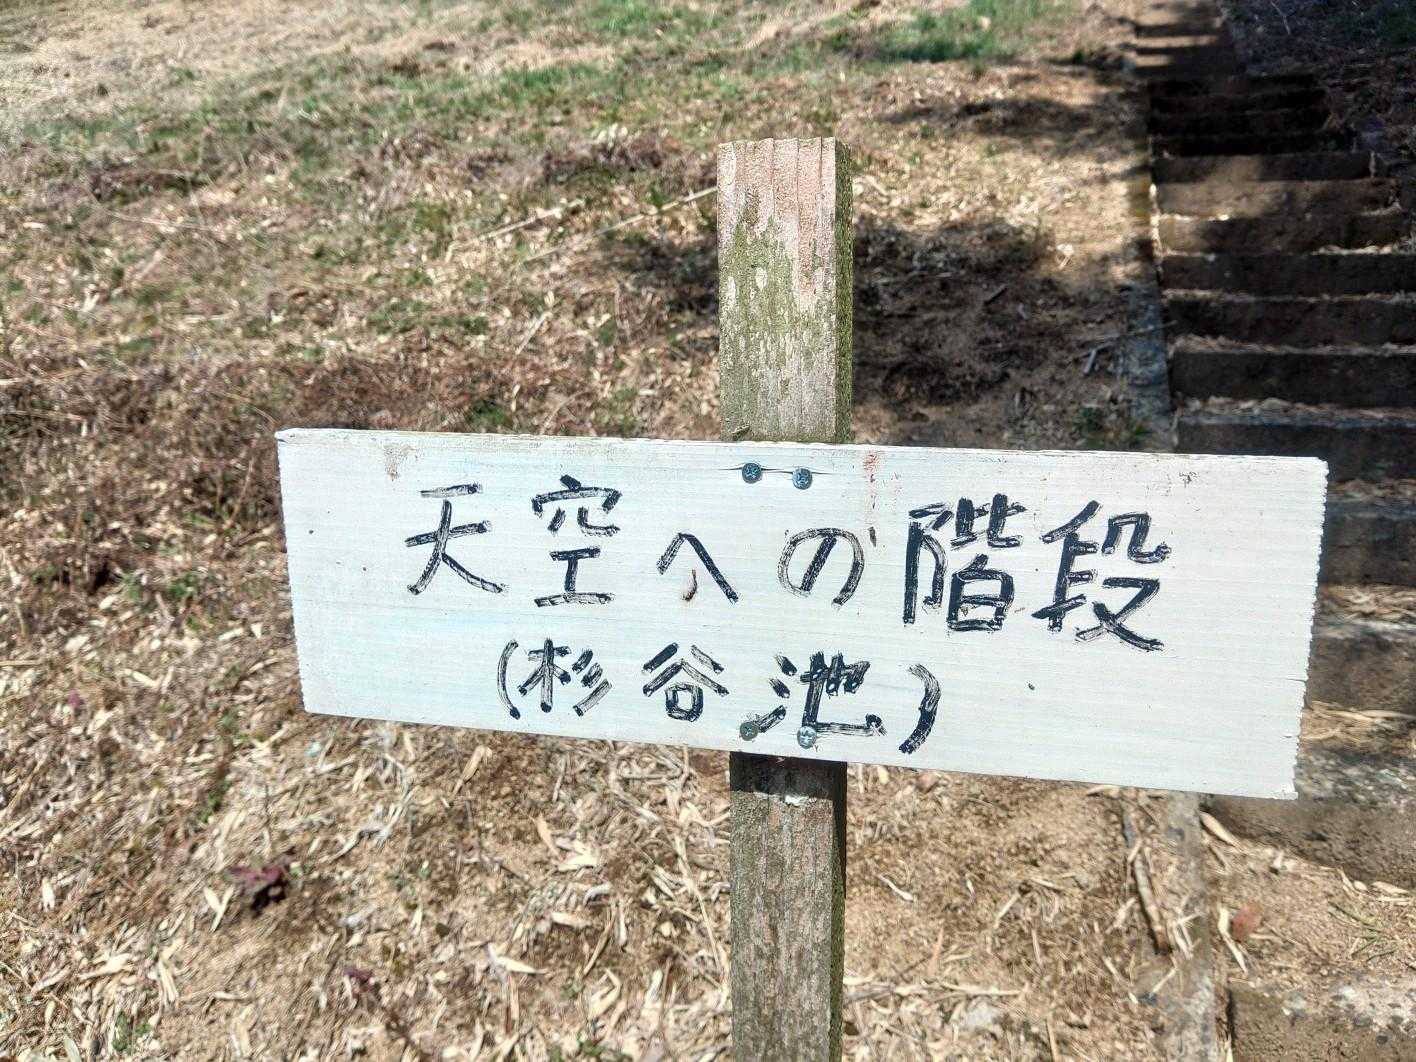 天空への階段
(杉谷池)